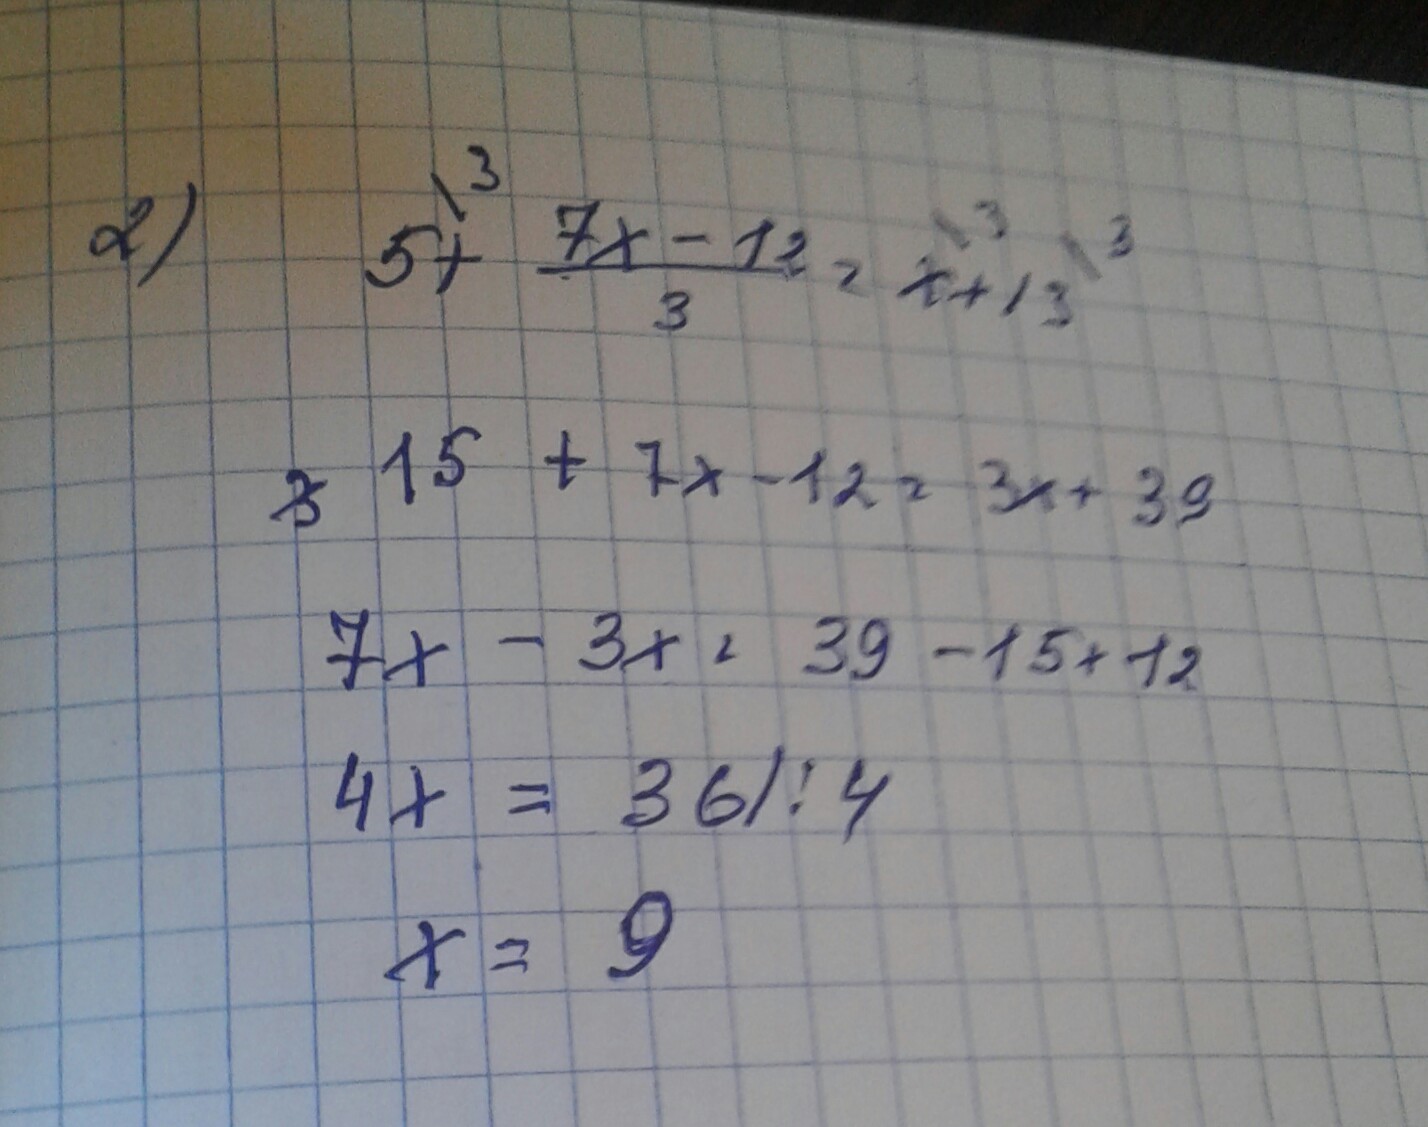 2) 5\³ + (7x - 12)/3 = x\³ + 13\³
15 + 7x - 12 = 3x + 39
7x - 3x = 39 - 15 + 12
4x = 36/:4
x = 9